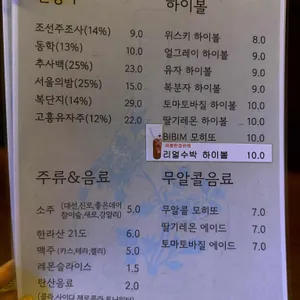 하이볼
조선주조사(14%) 9.0
동학(13%) 10.0
추사백(25%) 23.0
서울의밤(25%) 15.0
복단지(14%) 29.0
고흥유자주(12%) 22.0
위스키 하이볼 8.0
얼그레이 하이볼 9.0
유자 하이볼 9.0
복분자 하이볼 9.0
토마토바질 하이볼 10.0
딸기레몬 하이볼 10.0
BIBIM 모히또 10.0
리얼수박 하이볼 10.0
주류&음료
소주 (대선,진로,좋은데이 참이슬,새로,강알리) 5.0
한라산 21도 6.0
맥주 (카스,테라,켈리) 5.0
레몬슬라이스 1.5
탄산음료 2.0
무알콜음료
무알콜 모히또 7.0
딸기레몬 에이드 7.0
토마토바질 에이드 7.0